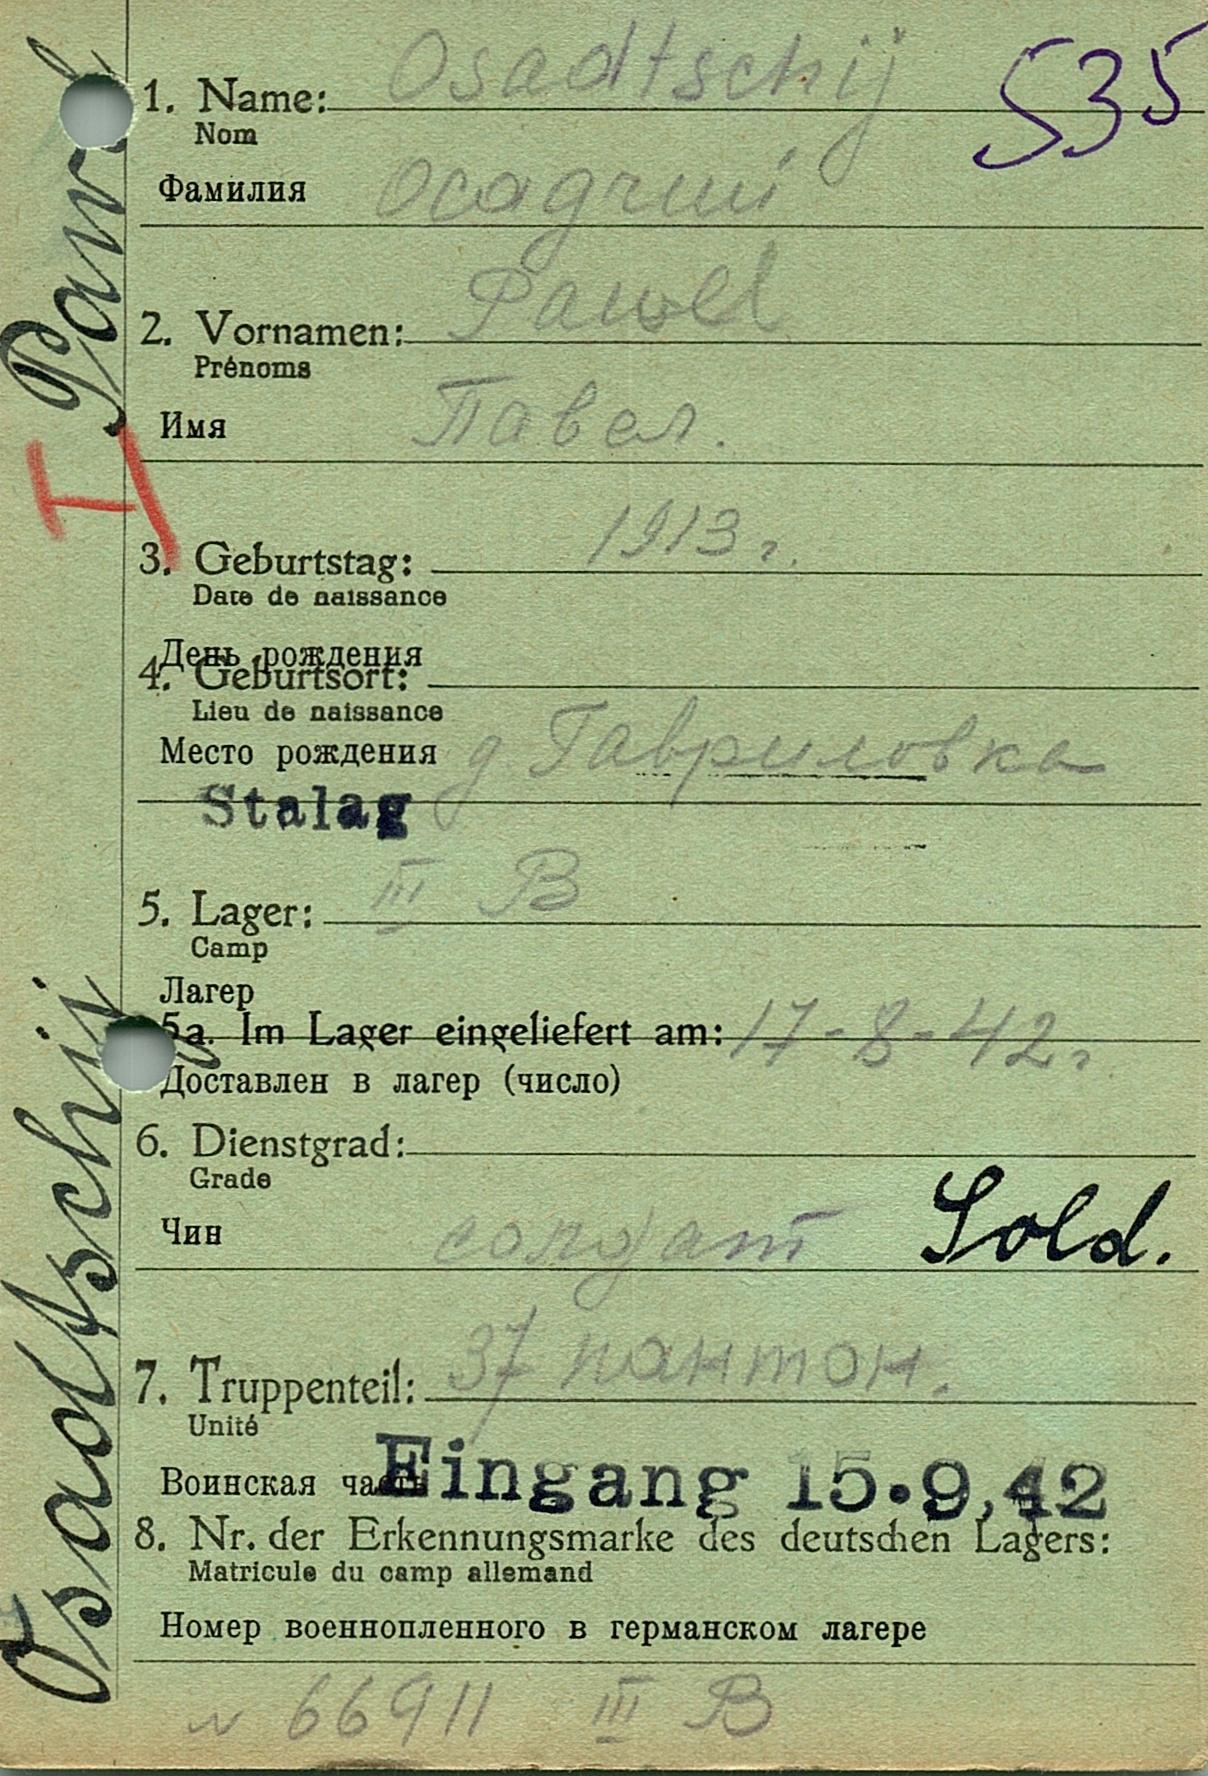 535
1. Name: Osadtschij
Nom
Фамилия Осадчий
2. Vornamen: Pawel
Prénoms
Имя Павел.
3. Geburtstag: 1913 г.
Date de naissance
День рождения
4. Geburtsort:
Lieu de naissance
Место рождения д Гавриловка
Stalag
5. Lager: III B
Camp
Лагер
5a. Im Lager eingeliefert am: 17-8-42 г
Доставлен в лагер (число)
6. Dienstgrad:
Grade
Чин солдат Sold.
7. Truppenteil: 37 пантон.
Unité
Воинская часть Eingang 15.9.42
8. Nr. der Erkennungsmarke des deutschen Lagers:
Matricule du camp allemand
Номер военнопленного в германском лагере
N 66911 III B
Osadtschij Pawel